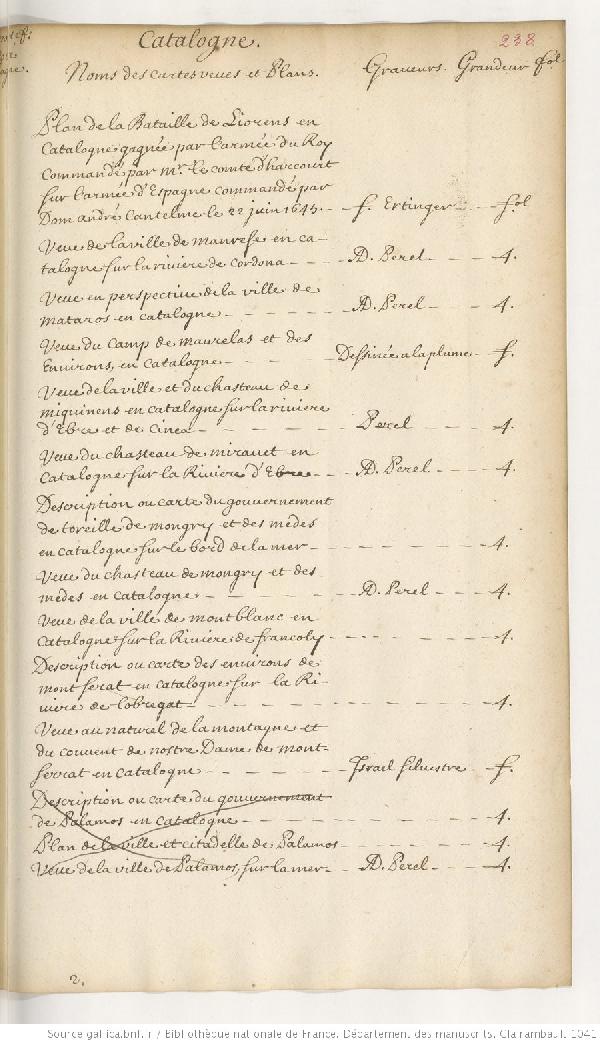 Catalogne.
238
Noms des cartes veues et Plans. Graveurs. Grandeur fol.
Plan de la Bataille de Liorens en
Catalogne gagnée par l'armée du Roy
Commandé par Mr. le comte d'harcourt
sur l'armée d'Espagne commandé par
Dom andré Cantelme le 22 juin 1645. f. Ertinger fol.
Veue de la ville de manrese en ca-
talogne sur la riviere de Cordona AD. Perel 4.
Veue en perspective de la ville de
mataros en catalogne AD. Perel 4.
Veue du Camp de maurelas et des
Environs, en catalogne Dessinée a la plume f.
Veue de la ville et du chasteau de
miquinens en catalogne sur la riviere
d'Ebre et de Cinca Perel 4.
Veue du chasteau de miravet en
Catalogne sur la Riviere d'Ebre AD. Perel 4.
Description ou carte du gouvernement
de toreille de mongry et des medes
en catalogne sur le bord de la mer 4.
Veue du chasteau de mongry et des
medes en catalogne AD. Perel 4.
Veue de la ville de montblanc en
Catalogne sur la Riviere de francoly 4.
Description ou carte des environs de
mont serat en catalogne sur la Ri-
viere de lobregat 4.
Veue au naturel de la montagne et
du couvent de nostre Dame de mont-
serrat en catalogne Israel silvestre f.
Description ou carte du gouvernement
de Palamos en catalogne 4.
Plan de la ville et citadelle de Palamos 4.
Veue de la ville de Palamos, sur la mer AD. Perel 4.
2.
Source gallica.bnf.fr / Bibliothèque nationale de France. Département des manuscrits. Clairambault 1041